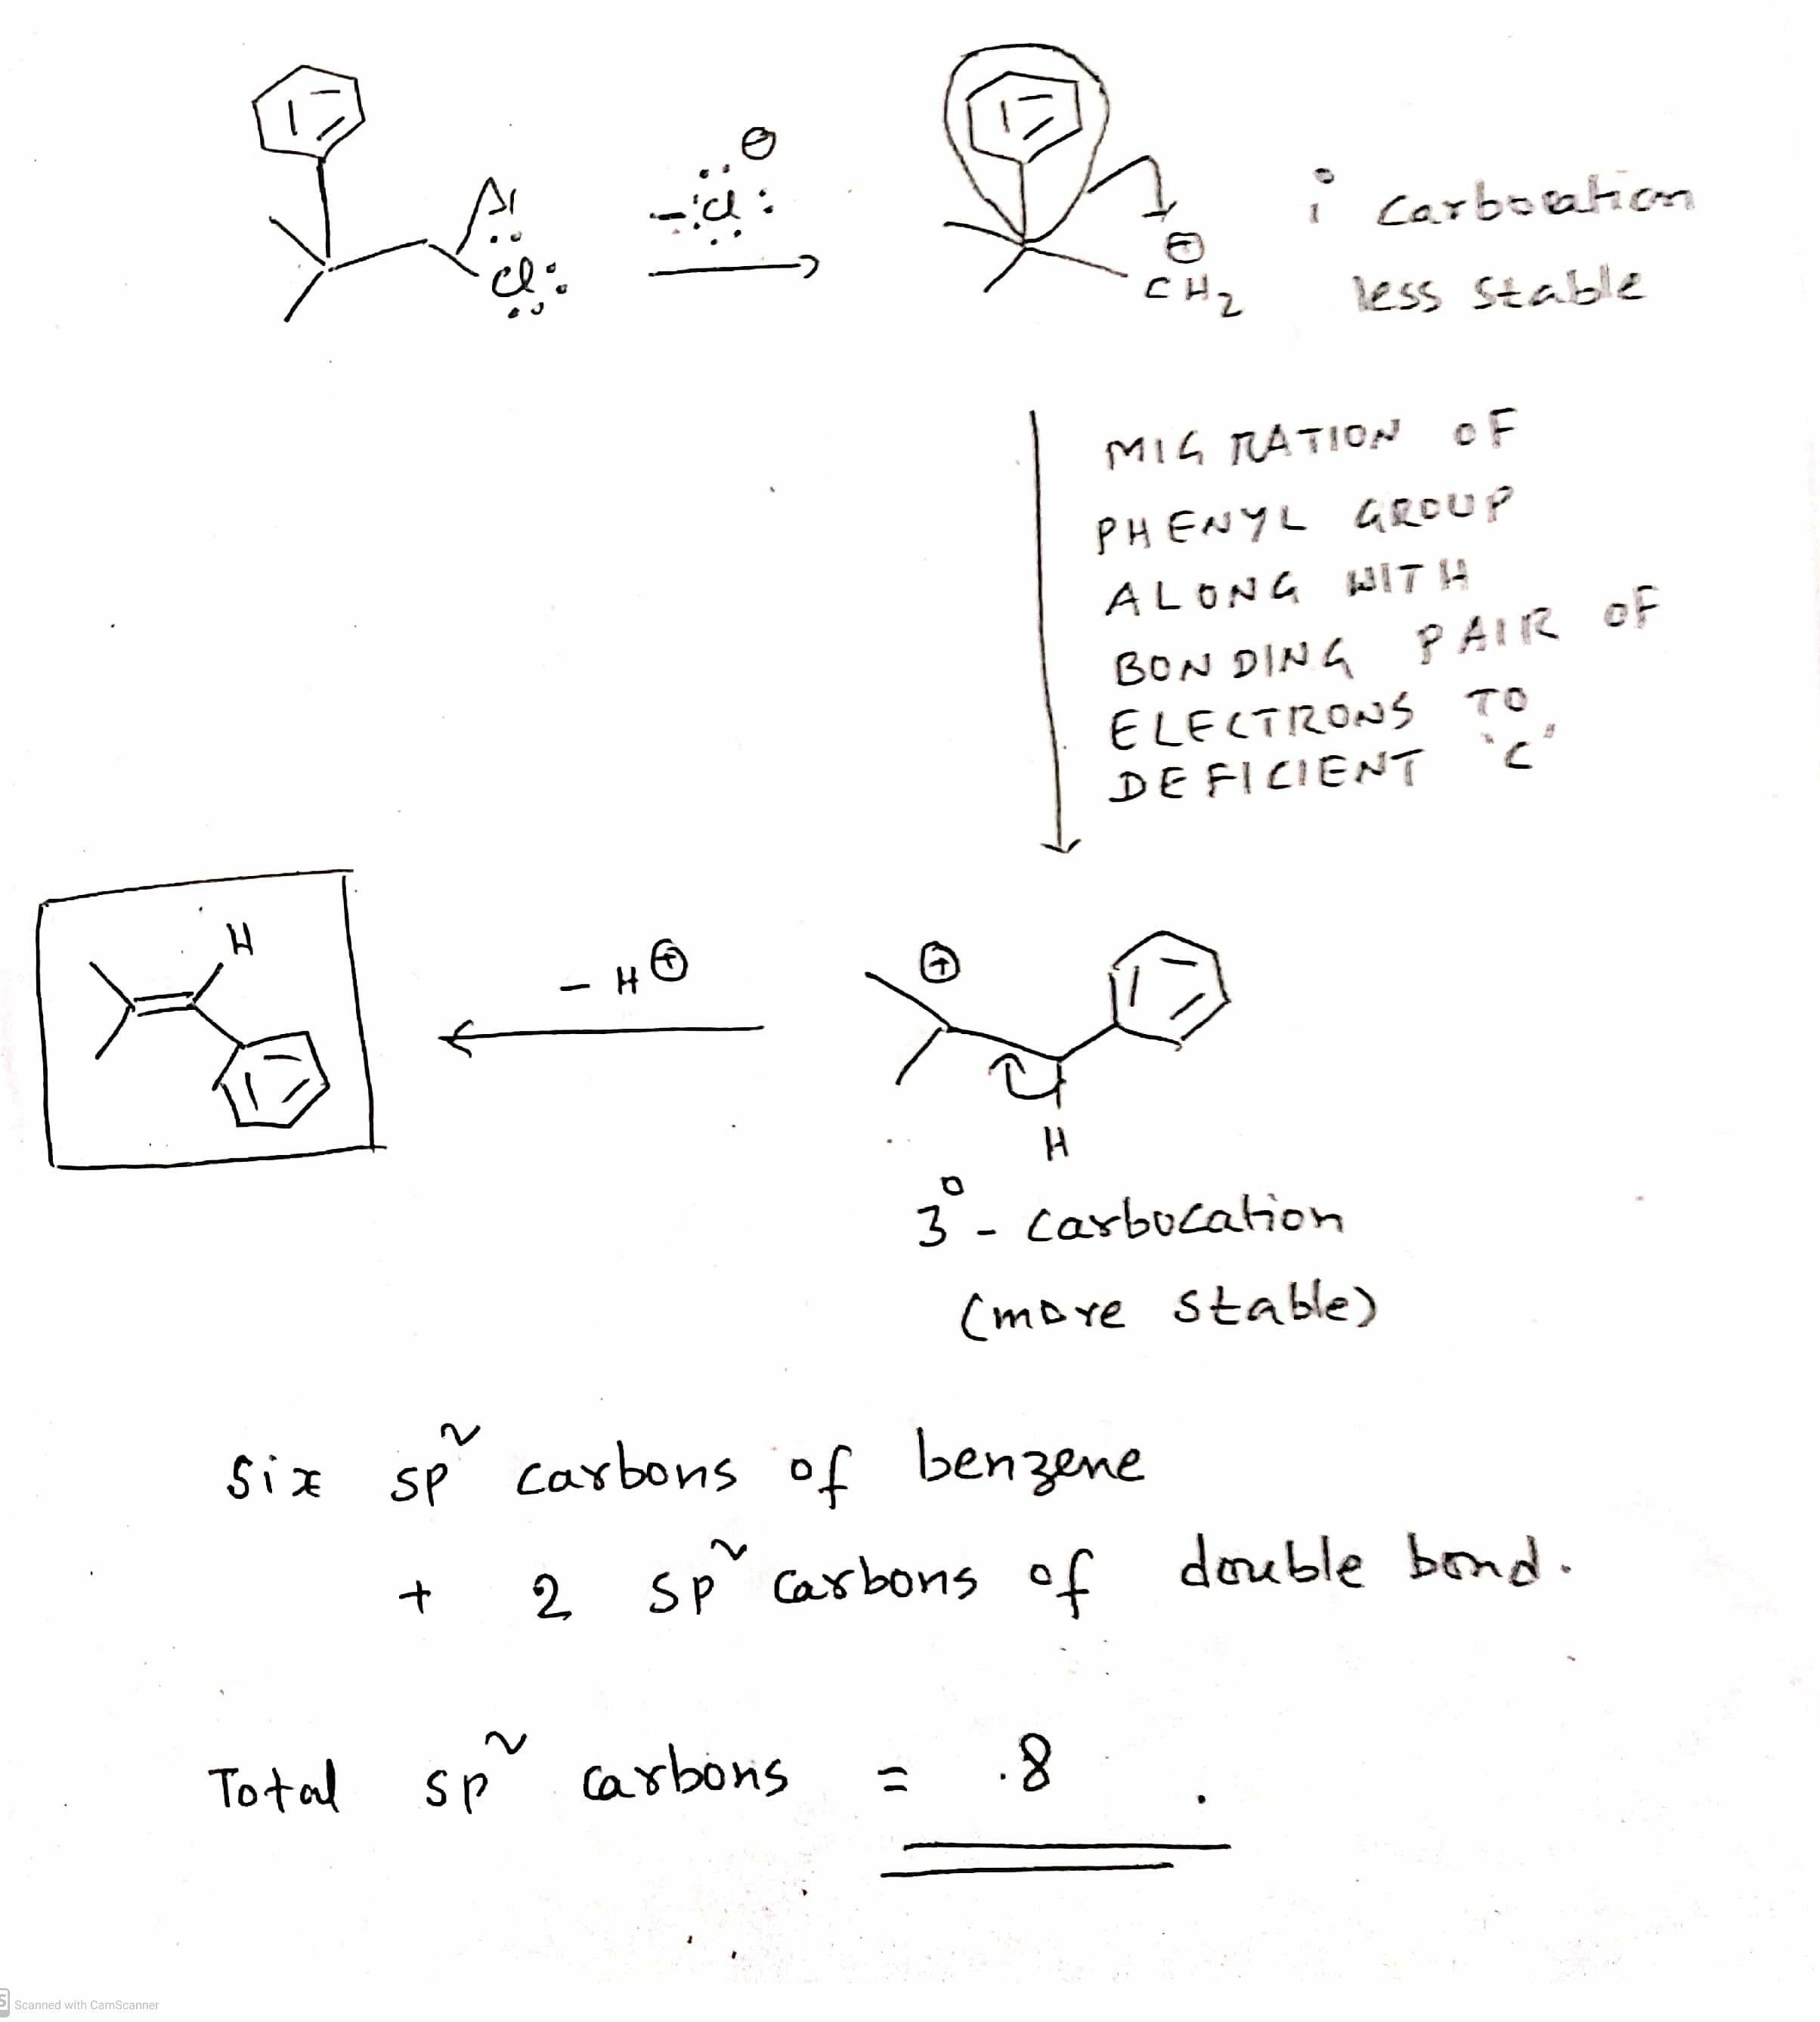 − :Cl: ⊖
Cl:
1° carbocation
⊕
CH2
less stable
MIGRATION OF
PHENYL GROUP
ALONG WITH
BONDING PAIR OF
ELECTRONS TO
DEFICIENT 'C'
H
− H⊕
⊕
H
3° - carbocation
(more stable)
Six sp² carbons of benzene
+ 2 sp² carbons of double bond.
Total sp² carbons = 8.
S Scanned with CamScanner